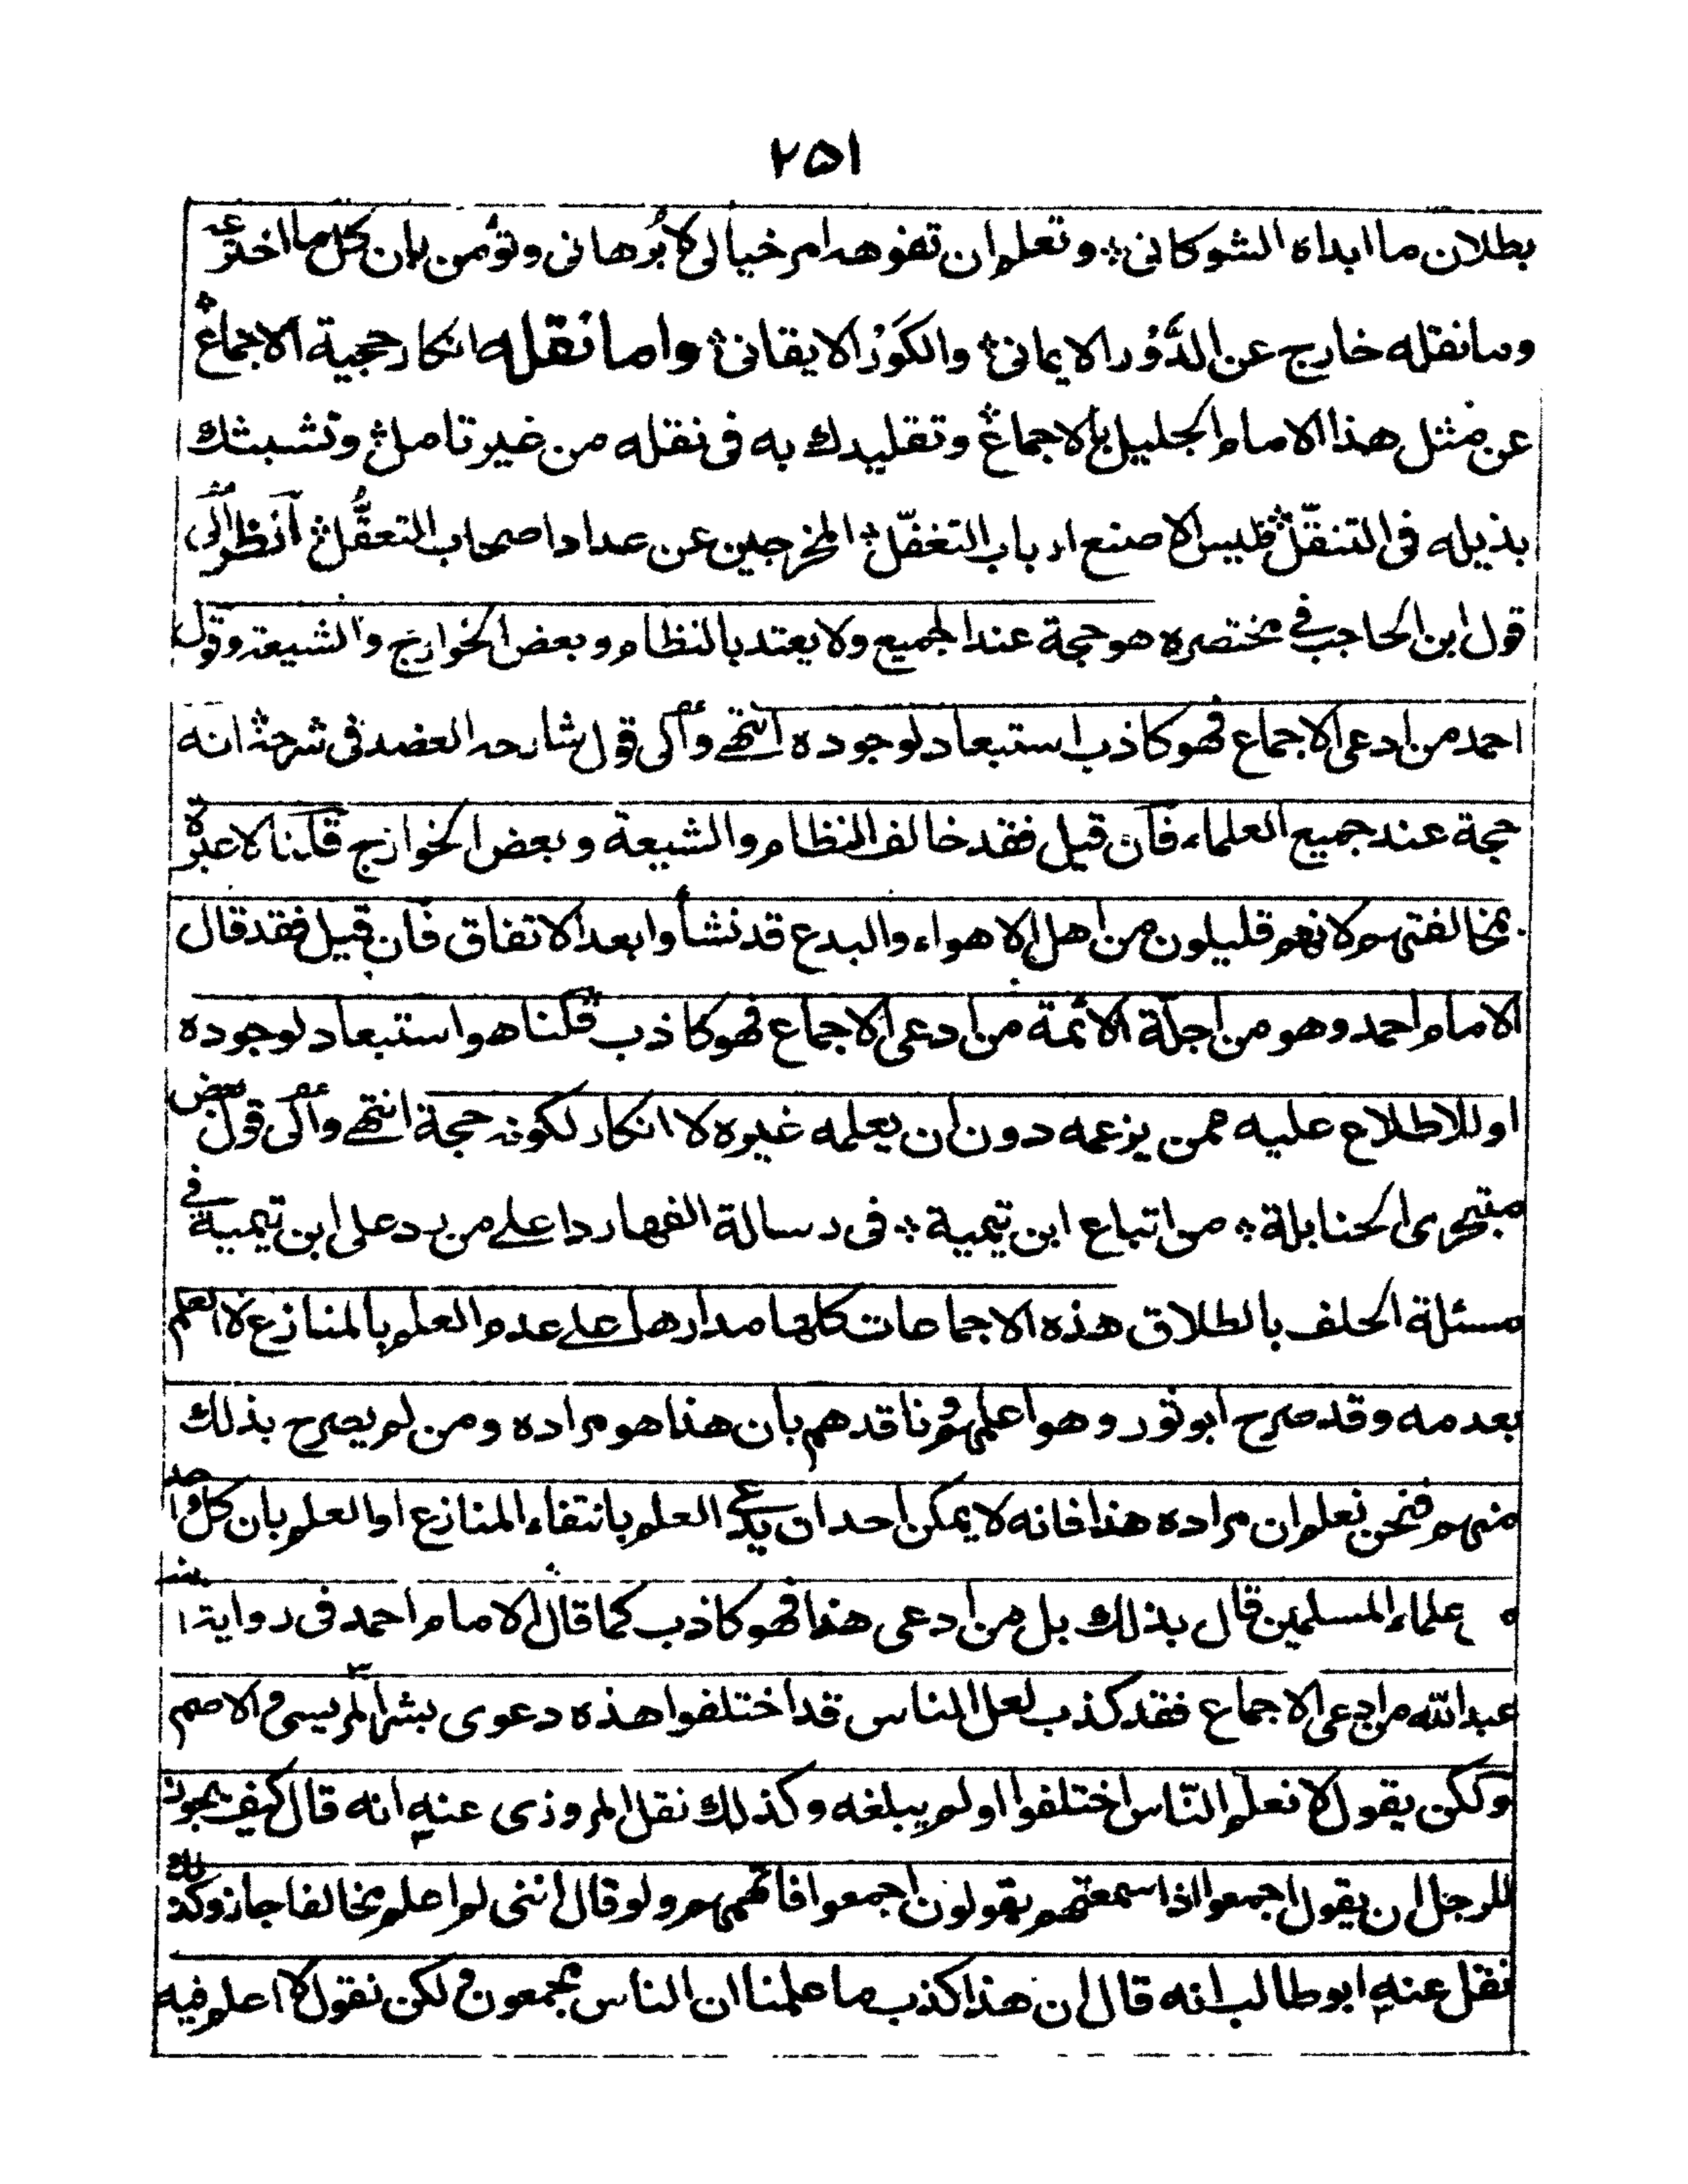 ٢٥١
بطلان ما ابداه الشوكانى؞ وتعلم ان تفوهه امر خيالى لا بُرهانى وتؤمن بان كل ما اخترعه
وما نقله خارج عن الدَّوْر الايمانى؞ والكَوْر الايقانى؞ واما نقله انكار حجية الاجماع؞
عن مثل هذا الامام الجليل بالاجماع؞ وتقليدك به فى نقله من غير تامل؞ وتشبثك
بذيله فى التنقّل؞ فليس الا صنع ارباب التغفّل؞ المخرجين عن عداد اصحاب التعقُّل؞ انظر الى
قول ابن الحاجب فى مختصره هو حجة عند الجميع ولا يعتد بالنظام وبعض الخوارج والشيعة وقول
احمد من ادعى الاجماع فهو كاذب استبعاد لوجوده انتهى والى قول شارحه العضد فى شرحه؞ انه
حجة عند جميع العلماء فان قيل فقد خالف النظام والشيعة وبعض الخوارج قلنا لا عبرة
بمخالفتهم لانهم قليلون من اهل الاهواء والبدع قد نشأوا بعد الاتفاق فان قيل فقد قال
الامام احمد وهو من اجلّة الائمة من ادعى الاجماع فهو كاذب قلنا هو استبعاد لوجوده
او للاطلاع عليه ممن يزعمه دون ان يعلمه غيره لا انكار لكونه حجة انتهى والى قول بعض
متبحرى الحنابلة؞ من اتباع ابن تيمية؞ فى رسالة الفها ردا على من رد على ابن تيمية فى
مسئلة الحلف بالطلاق هذه الاجماعات كلها مدارها على عدم العلم بالمنازع لا العلم
بعدمه وقد صرح ابو ثور وهو اعلمهم وناقدهم بان هذا هو مراده ومن لم يصرح بذلك
منهم فنحن نعلم ان مراده هذا فانه لا يمكن احد ان يدعى العلم بانتفاء المنازع او العلم بان كل واحد
علماء المسلمين قال بذلك بل من ادعى هذا فهو كاذب كما قال الامام احمد فى رواية ابنه
عبد الله من ادعى الاجماع فقد كذب لعل الناس قد اختلفوا هذه دعوى بشر المريسى والاصم
ولكن يقول لا نعلم النّاس اختلفوا او لم يبلغه وكذلك نقل المروزى عنه انه قال كيف يجوز
للرجل ان يقول اجمعوا اذا سمعتهم يقولون اجمعوا فاتهمهم ولو قال اننى لم اعلم مخالفا جاز وكذلك
نقل عنه ابو طالب انه قال ان هذا كذب ما علمنا ان الناس مجمعون ولكن نقول لا اعلم فيه